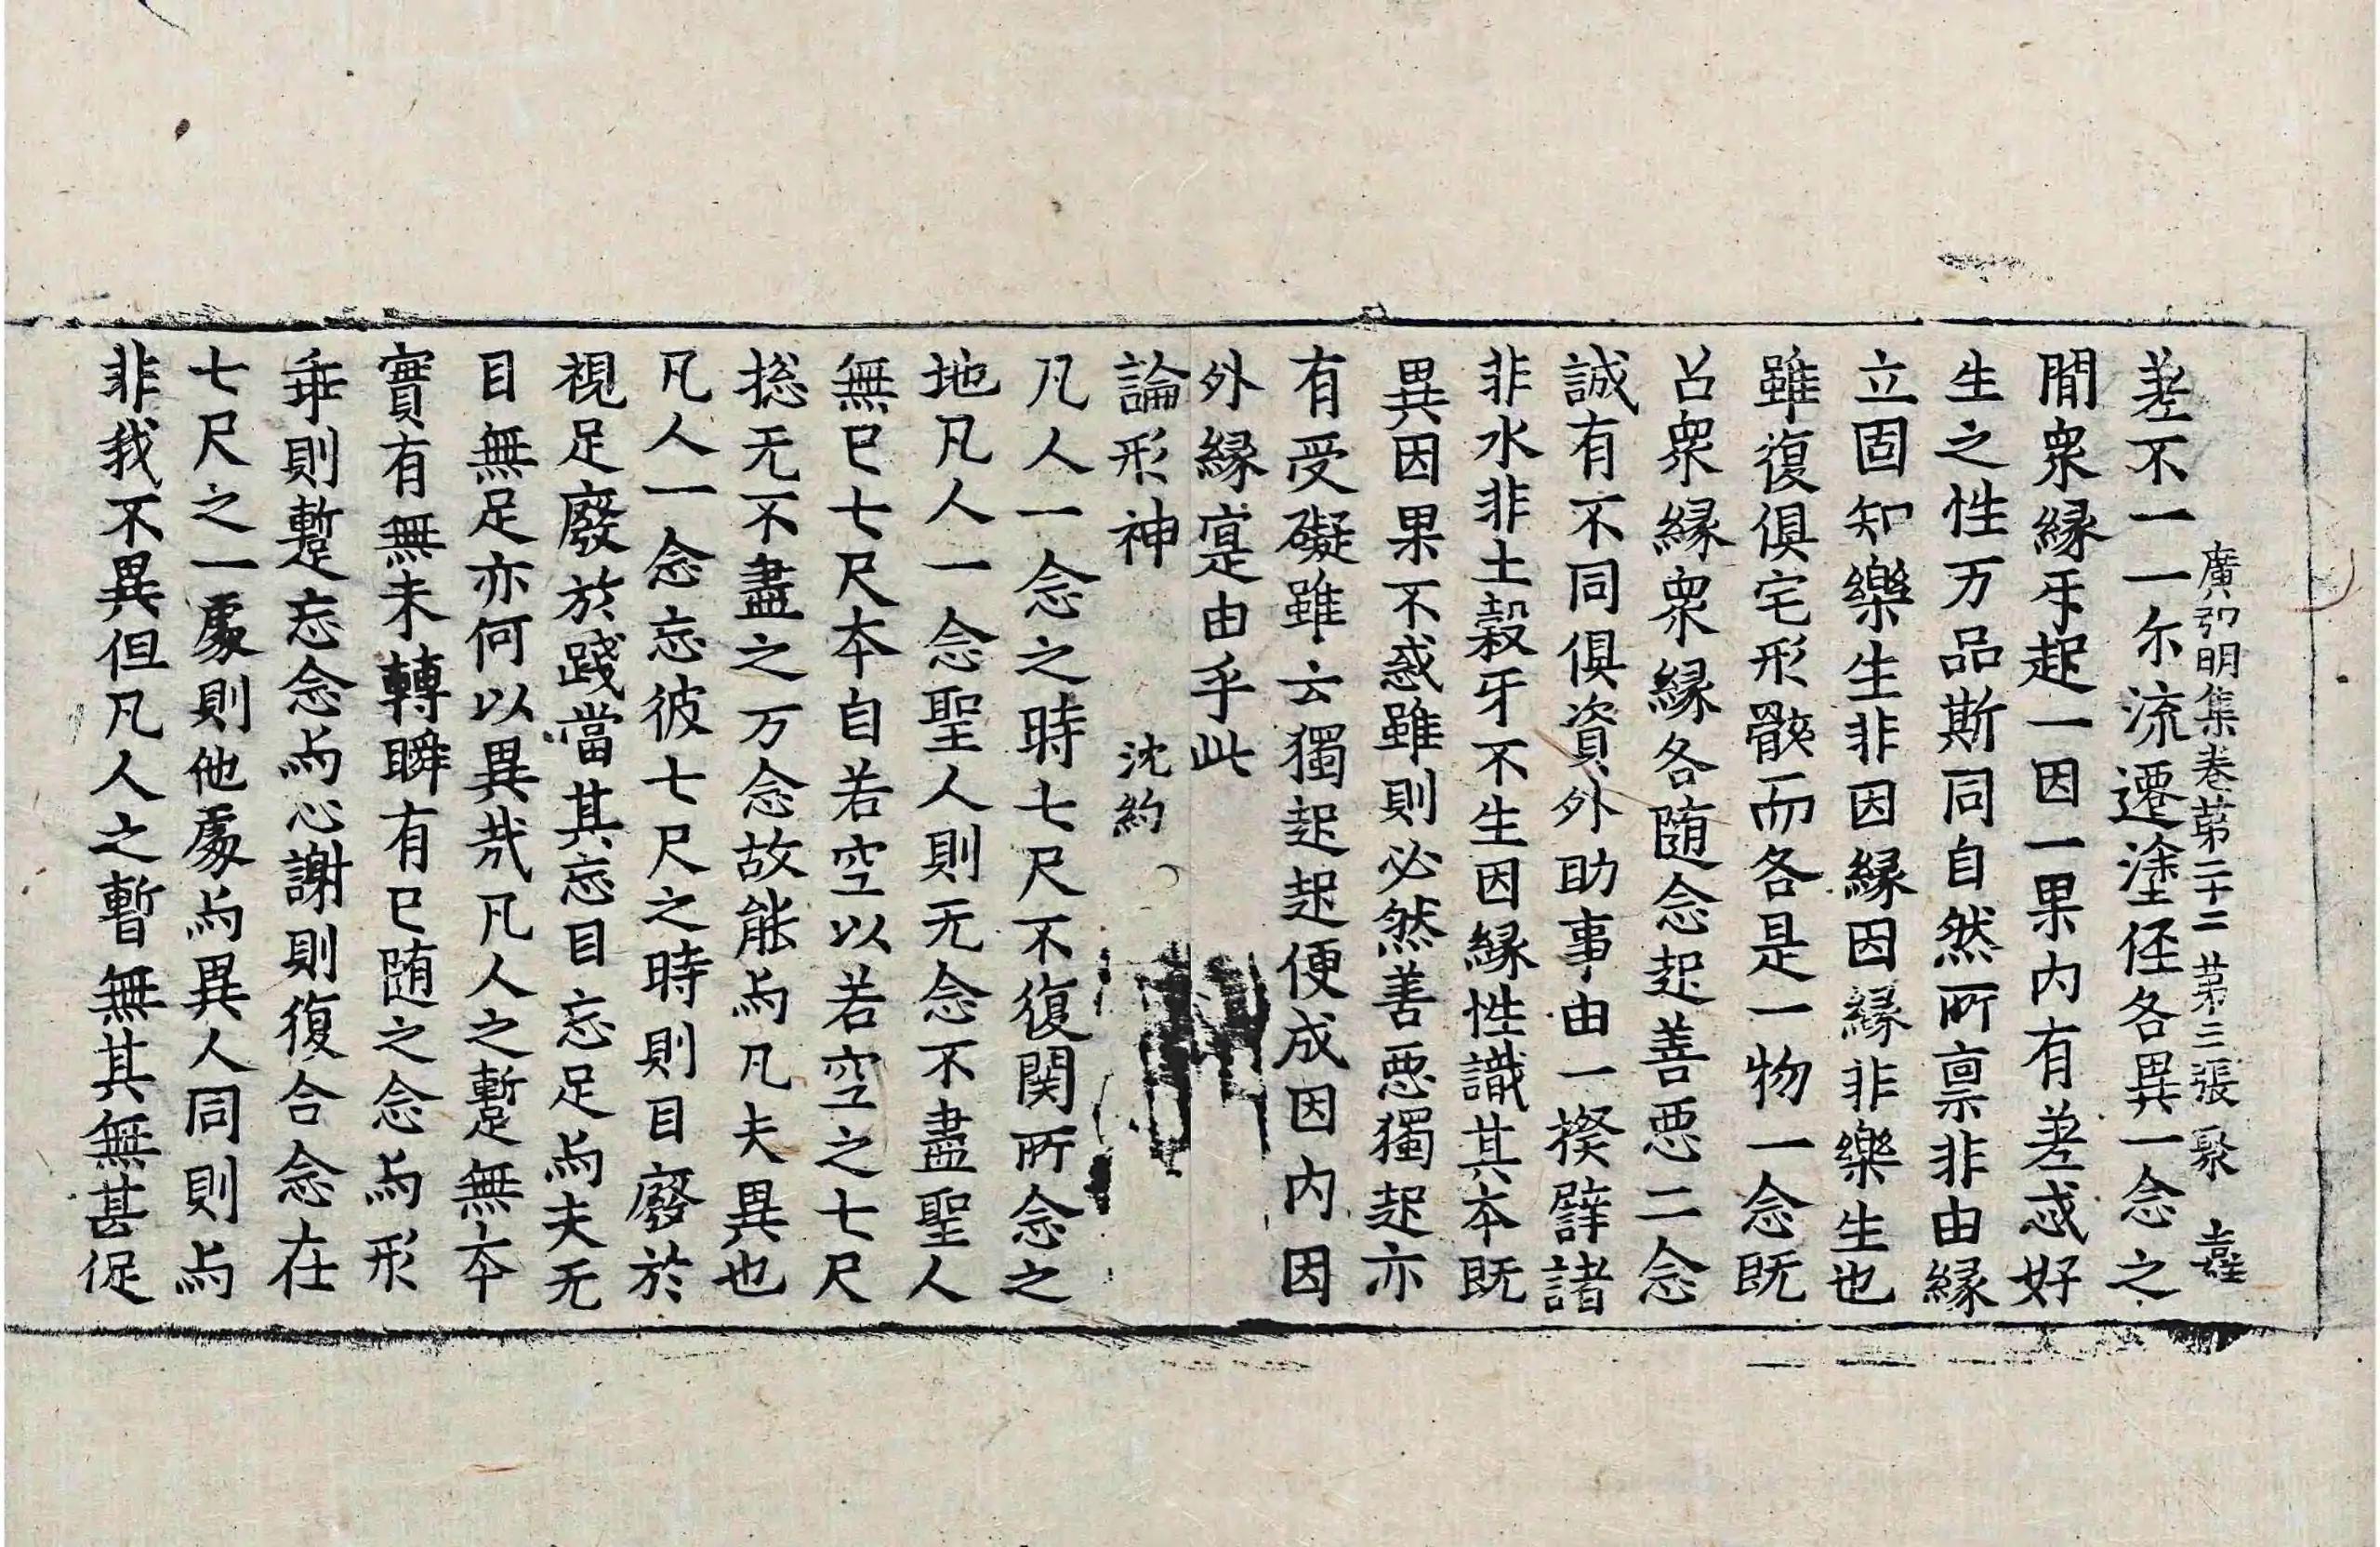 廣弘明集卷第二十二 第三張 聚
差不一一尔流遷塗径各異一念之
間衆縁㸦起一因一果内有差忒好
生之性万品斯同自然所禀非由縁
立固知樂生非因縁因縁非樂生也
雖復俱宅形骸而各是一物一念既
召衆縁衆縁各随念起善惡二念
誠有不同俱資外助事由一揆譬諸
非水非土穀牙不生因縁性識其本既
異因果不惑雖則必然善惡獨起亦
有受礙雖云獨起起便成因内因
外縁寔由乎此
論形神 沈約
凡人一念之時七尺不復関所念之
地凡人一念聖人則无念不盡聖人
無已七尺本自若空以若空之七尺
捴无不盡之万念故能為凡夫異也
凡人一念忘彼七尺之時則目廢於
視足廢於踐當其忘目忘足為夫无
目無足亦何以異㢤凡人之蹔無本
實有無未轉瞬有已随之念為形
乖則蹔忘念為心謝則復合念在
七尺之一處則他處為異人同則為
非我不異但凡人之暫無其無甚促